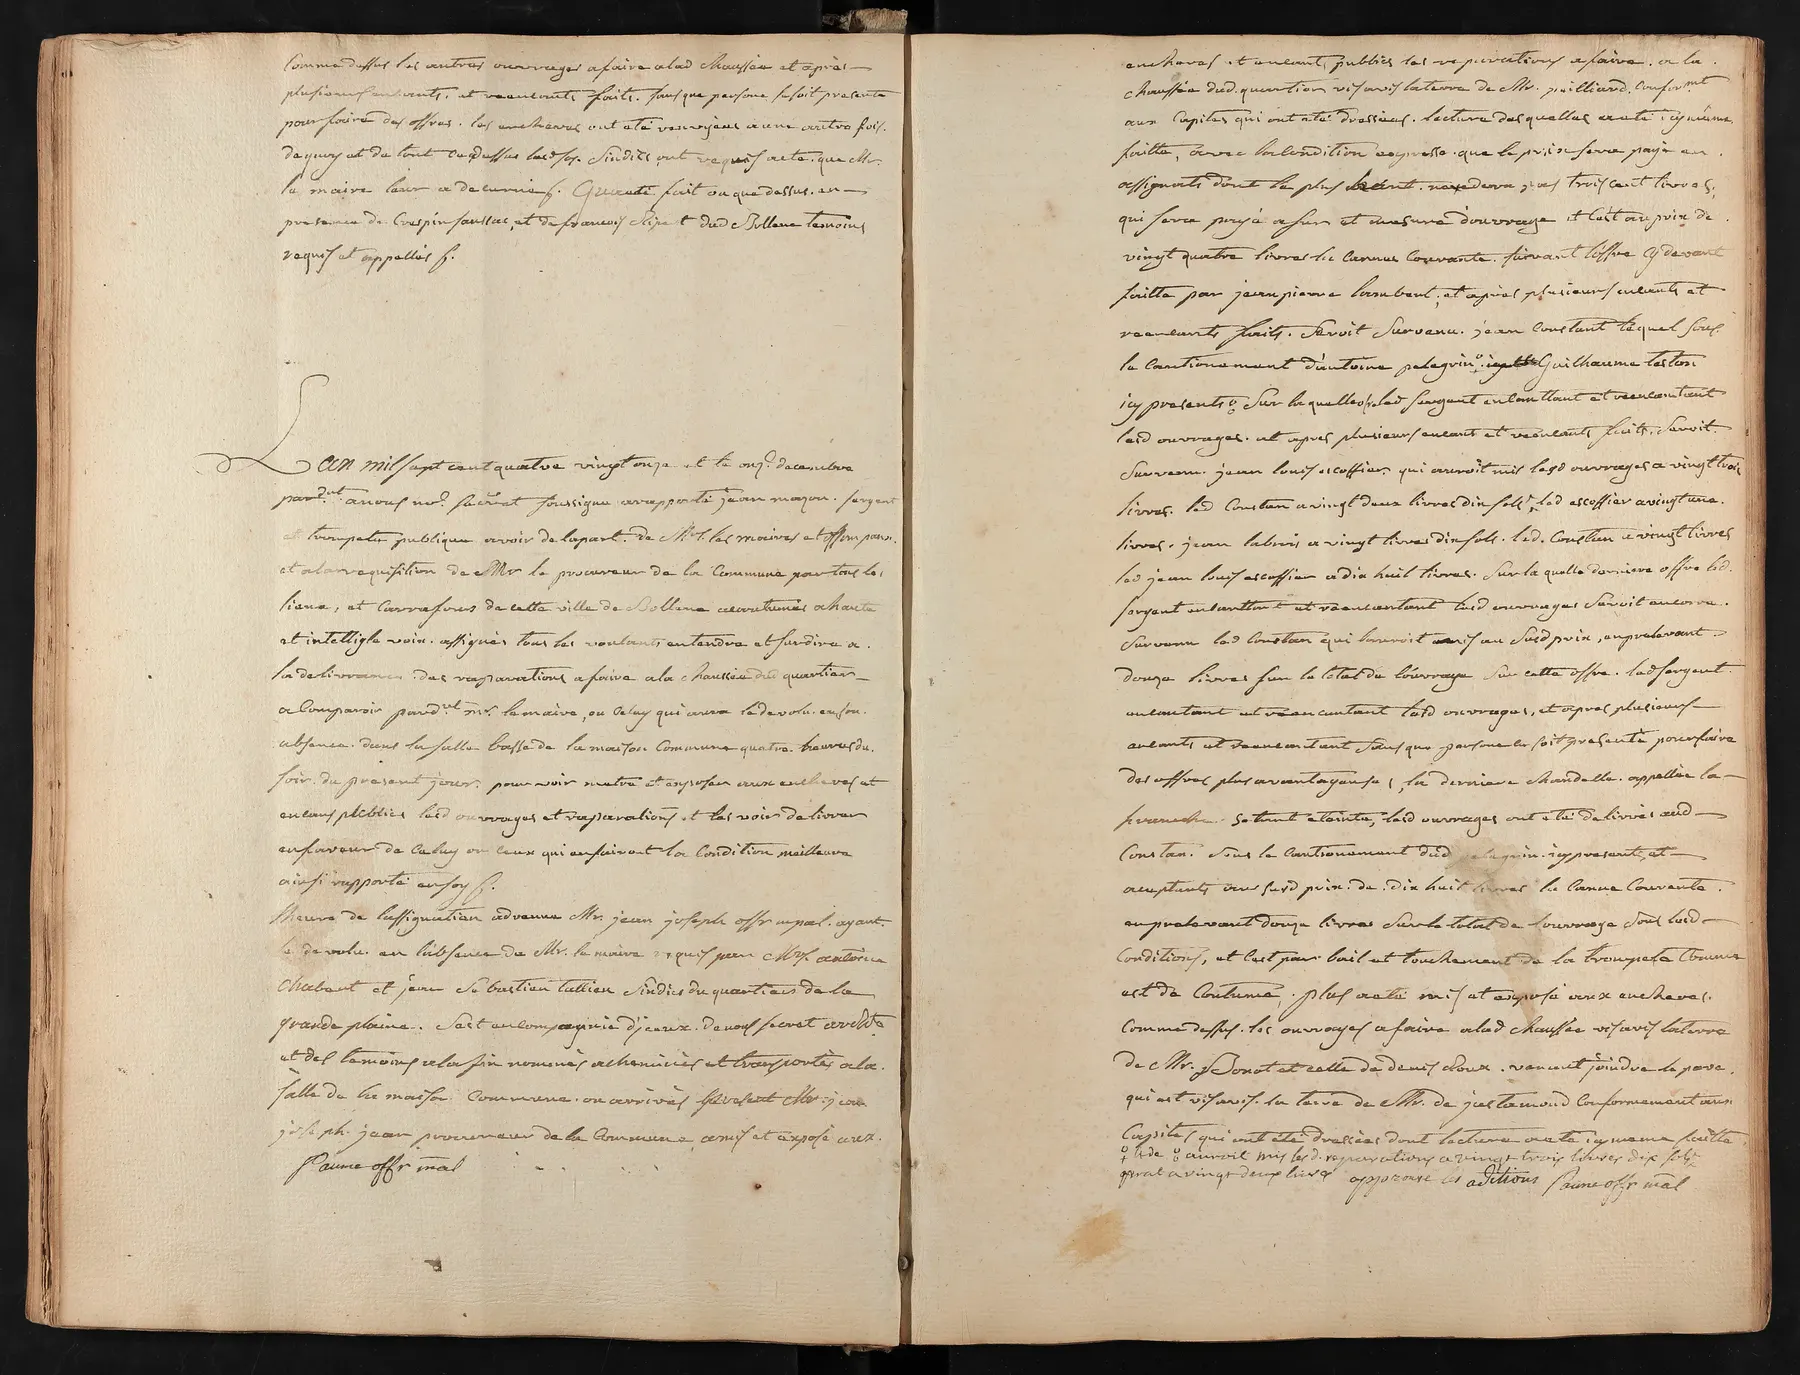 Comme dessus les autres ouvrages a faire a lad chaussée et après
plusieurs encants et reencants faits. sans que persone se soit presenté
pour faire des offres. les encheres ont été renvoyées a une autre fois.
de quoy et de tout ce dessus lesd srs. sindics ont requis acte. que Mr.
le maire leur a decerné fait ou que dessus. en
presence de Crespin saussac, et de francois Ripert dud Bollene temoins
requis et appellés
Lan mil sept cent quatre vingt onze et le onze decembre
pard.nt a nous no.re secret soussigné a rapporté jean mazon. sergent
et trompete publique avoir de la part. de Mrs. les maires et off.
et a la requisition de Mr le procureur de la Commune par tous les
lieux, et carrefours de cette ville de Bollene accoutumés a haute
et intelligle voix. assignés tous les voulants entendre et surdire a.
la delivrance des reparations a faire a la chaussée dud quartier
a Comparoir pard.nt mr. le maire, ou celuy qui aura le devolu. en son.
absence. dans la salle basse de la maison Commune quatre. heures du.
soir. du present jour. pour voir metre et exposer aux encheres et
encans publics lesd ouvrages et reparations et les voir delivrer
en faveur de Celuy ou ceux qui en fairont la Condition meilleure
ainsi rapporté en foy
lheure de lassignation advenue Mr. jean joseph off. mpal. ayant.
le devolu. en labsence de Mr. le maire requis par Mrs. antoine
Chabert et jean Sebastien tattien sindics du quartiers de la
grande plaine. Sest en compagnie d'iceux. de nous secret
et des temoins a la fin nommés acheminés et transportés a la.
salle de la maison Commune. ou arrivés Mr. jean
joseph. jean procureur de la Commune a mis et exposé aux.
faune offr mal
encheres et encant publics les reparations a faire. a la.
chaussée dud. quartier vis avis la terre de Mr. pailliard. Conformt
aux Capites qui ont été dressées. lecture desquelles a eté icy même
faitte, avec la Condition expresse. que le prix sera payé en.
assignats dont le plus haut. nexedera pas trois cent livres,
qui sera payé a fur et mesure d'ouvrage et C'est au prix de.
vingt quatre livres la Canne Courante. suivant l'offre cy devant
faitte par jean pierre lambert; et après plusieurs encants et
reencants faits. Seroit Survenu. jean Constant lequel sous
le Cautionement d'antoine pelegrin Guilhaume teston
icy presents Sur laquelle led sergent encantant et reencantant
lesd ouvrages. et apres plusieurs encant et reencants faits. Seroit.
Survenu. jean louis escoffier qui auroit mis lesd ouvrages a vingt trois
livres. led Constan a vingt deux livres dix sols, led escoffier a vingt une.
livres. jean labris a vingt livres dix sols. led. Constan a vingt livres
led jean louis escoffier a dix huit livres. Sur la quelle derniere offre led.
sergent encantant et reencantant lesd ouvrages Seroit encore.
Survenu led Constan qui lauroit mis au Susd prix, en prelevant.
douze livres sur le total de l'ouvrage Sur cette offre. led sergent.
encantant et reencantant lesd ouvrages, et apres plusieurs
encants et reencantant sans que persone se soit presenté pour faire
des offres plus avantageuses, la derniere chandelle. appellée la
franche. setant eteinte, lesd ouvrages ont été delivrés aud
Constan. Sous le Cautionement dud pelegrin. icy present, et
aceptants au susd prix. de. dix huit livres la Canne Courente.
en prelevant douze livres Sur le total de louvrage Sous lesd
Conditions, et C'est par bail et touchement de la trompete Comme
est de Coutume, plus a eté mis et exposé aux encheres.
Comme dessus. les ouvrages a faire a lad chaussée vis avis la terre
de Mr. Bonot et celle de denis doux. venant joindre le pavé.
qui est vis avis. la terre de Mr. de justamond Conformement aux
Capites qui ont été dressées dont lecture a eté icy meme faitte.
et de auroit mis lesd. reparations a vingt trois livres dix sols
a vingt deux livres approuvé les aditions faune offr mal